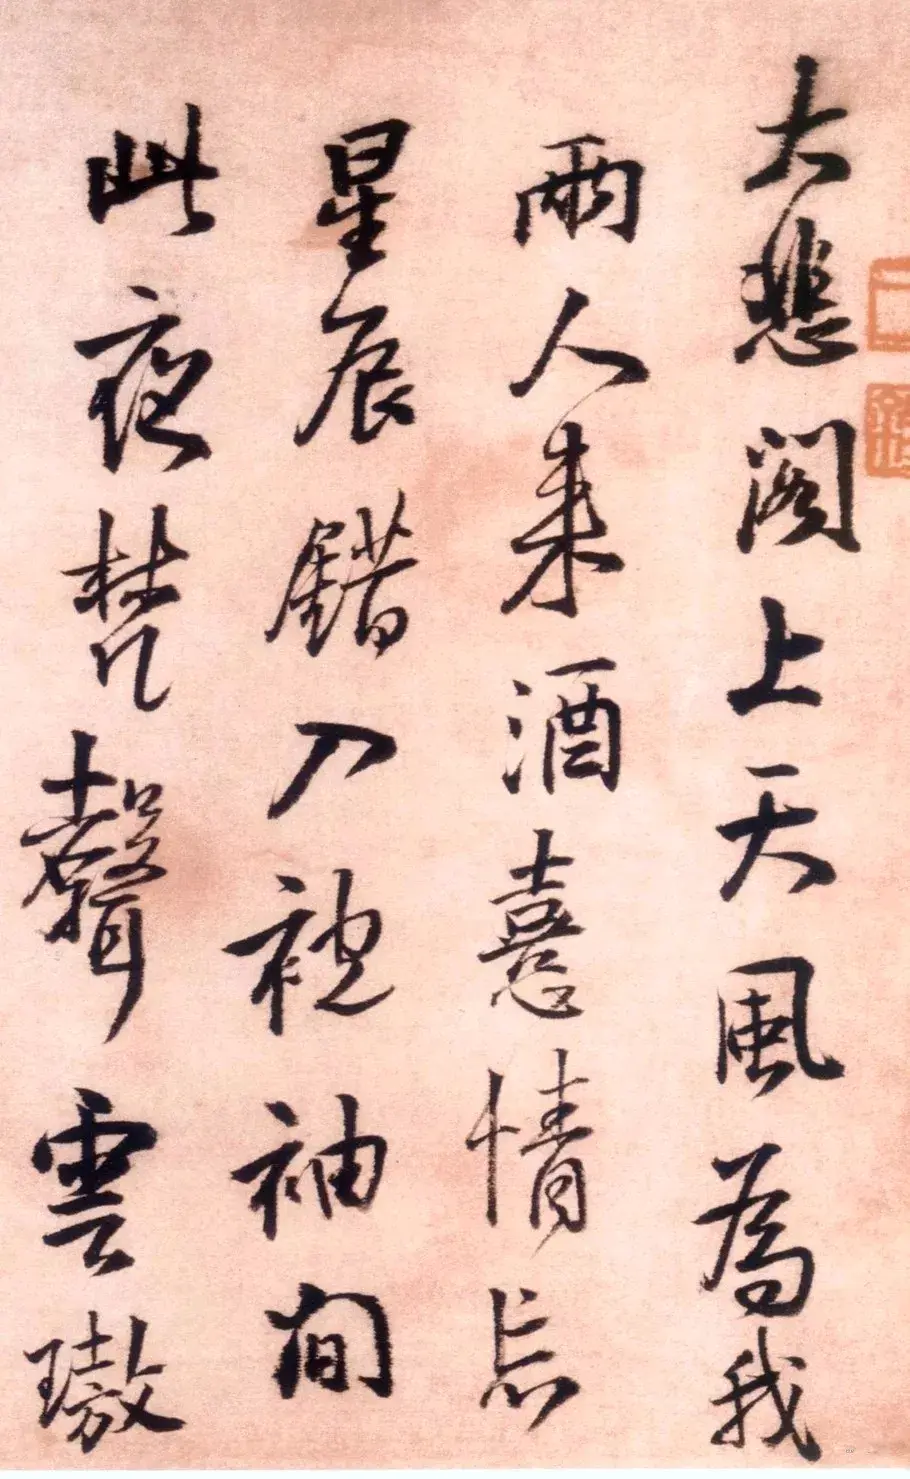 大悲閣上天風為我
兩人來酒憙情忘
星辰錯入袖間
此夜梵聲雲璈